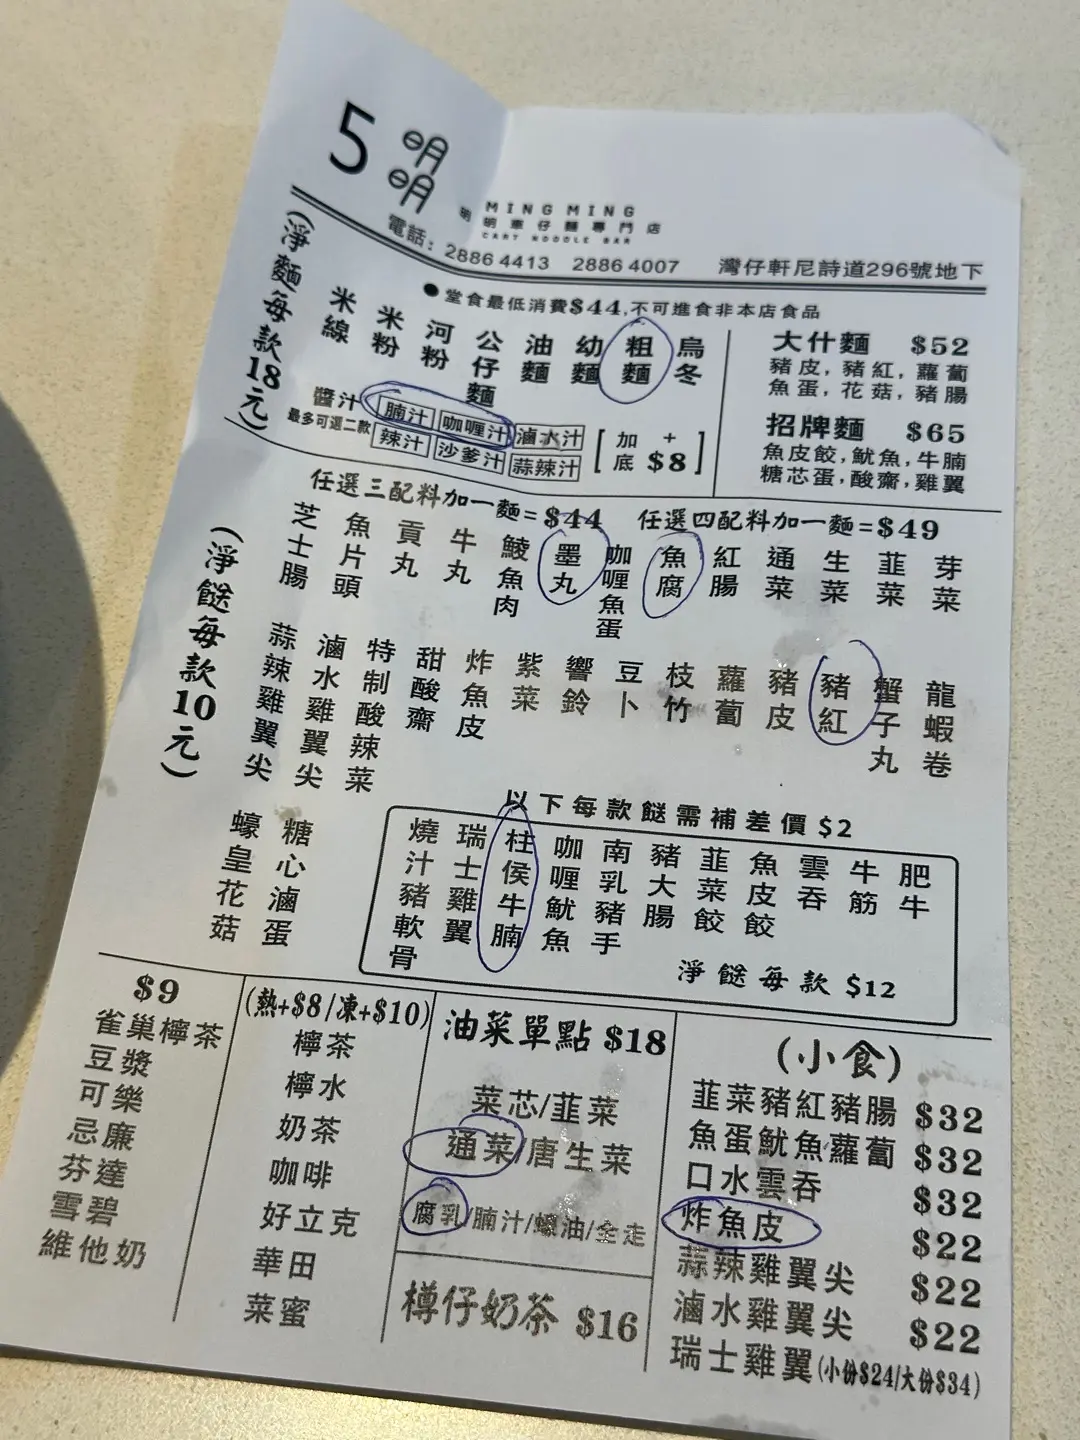 5 明明
MING MING
明明車仔麵專門店
CART NOODLE BAR
電話: 2886 4413 2886 4007 灣仔軒尼詩道296號地下
●堂食最低消費$44,不可進食非本店食品
(淨麵每款18元)
米線 米粉 河粉 公仔麵 油麵 幼麵 粗麵 烏冬
醬汁 腩汁 咖喱汁 滷水汁
最多可選二款 辣汁 沙爹汁 蒜辣汁
[加底 +$8]
大什麵 $52
豬皮,豬紅,蘿蔔
魚蛋,花菇,豬腸
招牌麵 $65
魚皮餃,魷魚,牛腩
糖芯蛋,酸齋,雞翼
任選三配料加一麵=$44 任選四配料加一麵=$49
(淨餸每款10元)
芝士腸 魚片頭 貢丸 牛丸 鯪魚肉 墨丸 咖喱魚蛋 魚腐 紅腸 通菜 生菜 韮菜 芽菜
蒜辣雞翼尖 滷水雞翼尖 特制酸辣菜 甜酸齋 炸魚皮 紫菜 響鈴 豆卜 枝竹 蘿蔔 豬皮 豬紅 蟹子丸 龍蝦卷
蠔皇花菇 糖心滷蛋
以下每款餸需補差價$2
燒汁豬軟骨 瑞士雞翼 柱侯牛腩 咖喱魷魚 南乳豬手 豬大腸 韮菜餃 魚皮餃 雲吞 牛筋 肥牛
淨餸每款 $12
$9
雀巢檸茶
豆漿
可樂
忌廉
芬達
雪碧
維他奶
(熱+$8/凍+$10)
檸茶
檸水
奶茶
咖啡
好立克
華田
菜蜜
油菜單點 $18
菜芯/韮菜
通菜/唐生菜
腐乳/腩汁/蠔油/全走
樽仔奶茶 $16
(小食)
韮菜豬紅豬腸 $32
魚蛋魷魚蘿蔔 $32
口水雲吞 $32
炸魚皮 $22
蒜辣雞翼尖 $22
滷水雞翼尖 $22
瑞士雞翼(小份$24/大份$34)